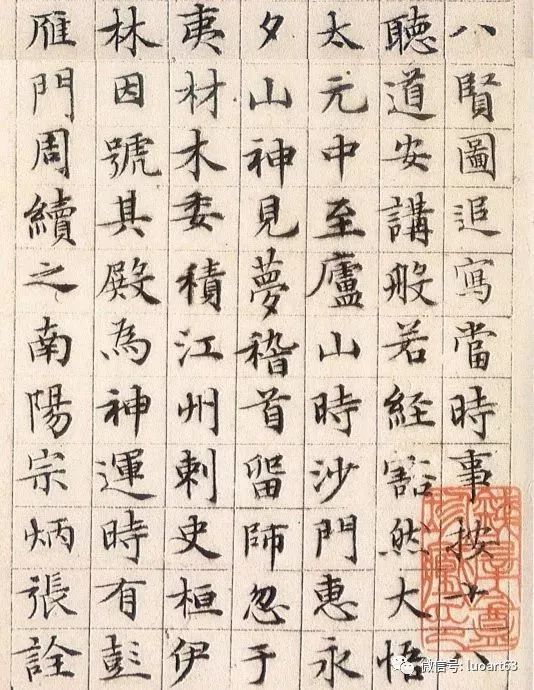 八賢圖追寫當時事按十八
聽道安講般若經豁然大悟
太元中至廬山時沙門惠永
夕山神見夢稽首留師忽于
夷材木委積江州刺史桓伊
林因號其殿為神運時有彭
雁門周續之南陽宗炳張詮
微信号: luoart63